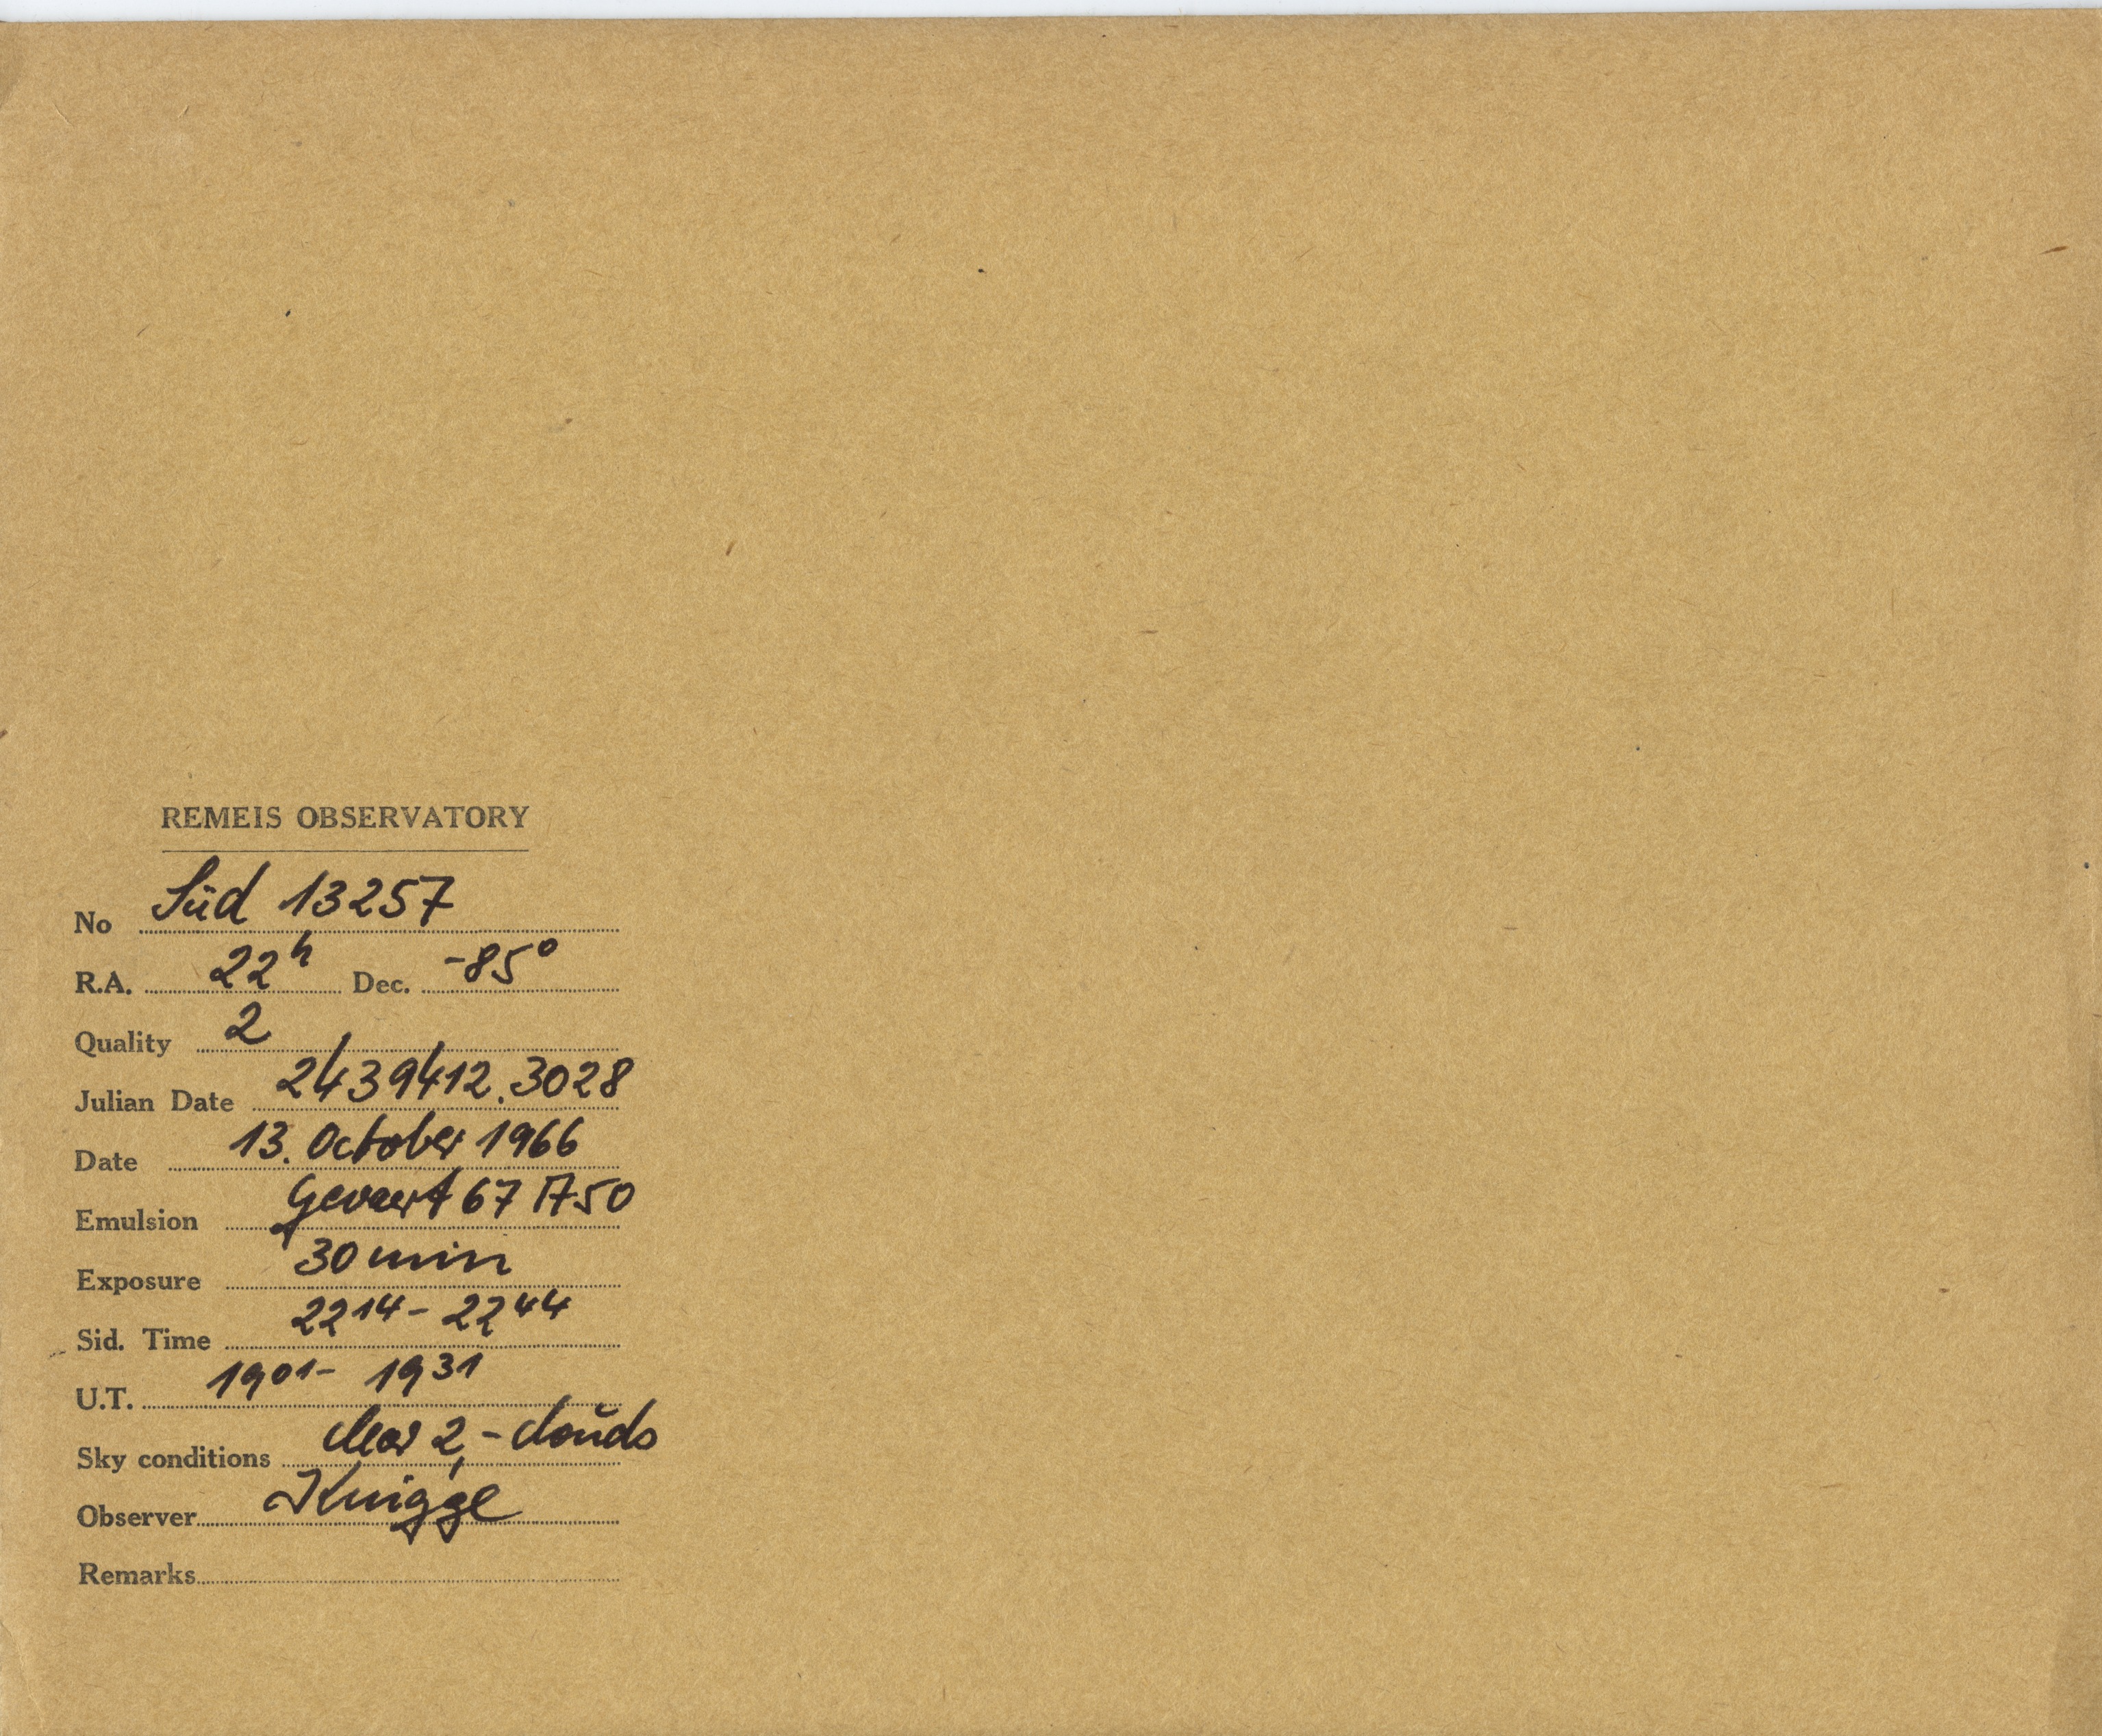 REMEIS OBSERVATORY
No Süd 13257
R.A. 22h Dec. -85°
Quality 2
Julian Date 2439412.3028
Date 13. October 1966
Emulsion Gevaert 67 A50
Exposure 30 min
Sid. Time 22 14 - 22 44
U.T. 19 01 - 19 31
Sky conditions clear 2, - clouds
Observer Knigge
Remarks